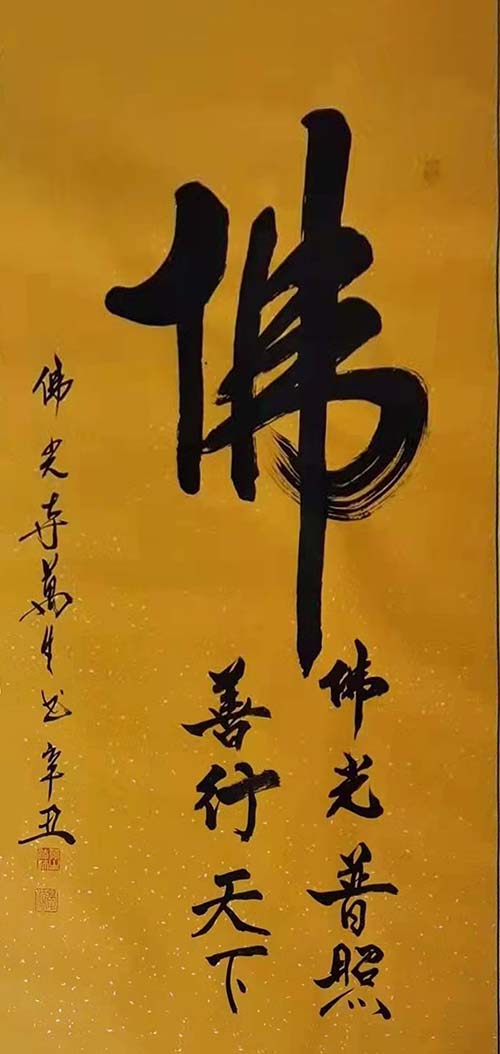 佛
佛光普照
善行天下
佛光寺萬生书辛丑